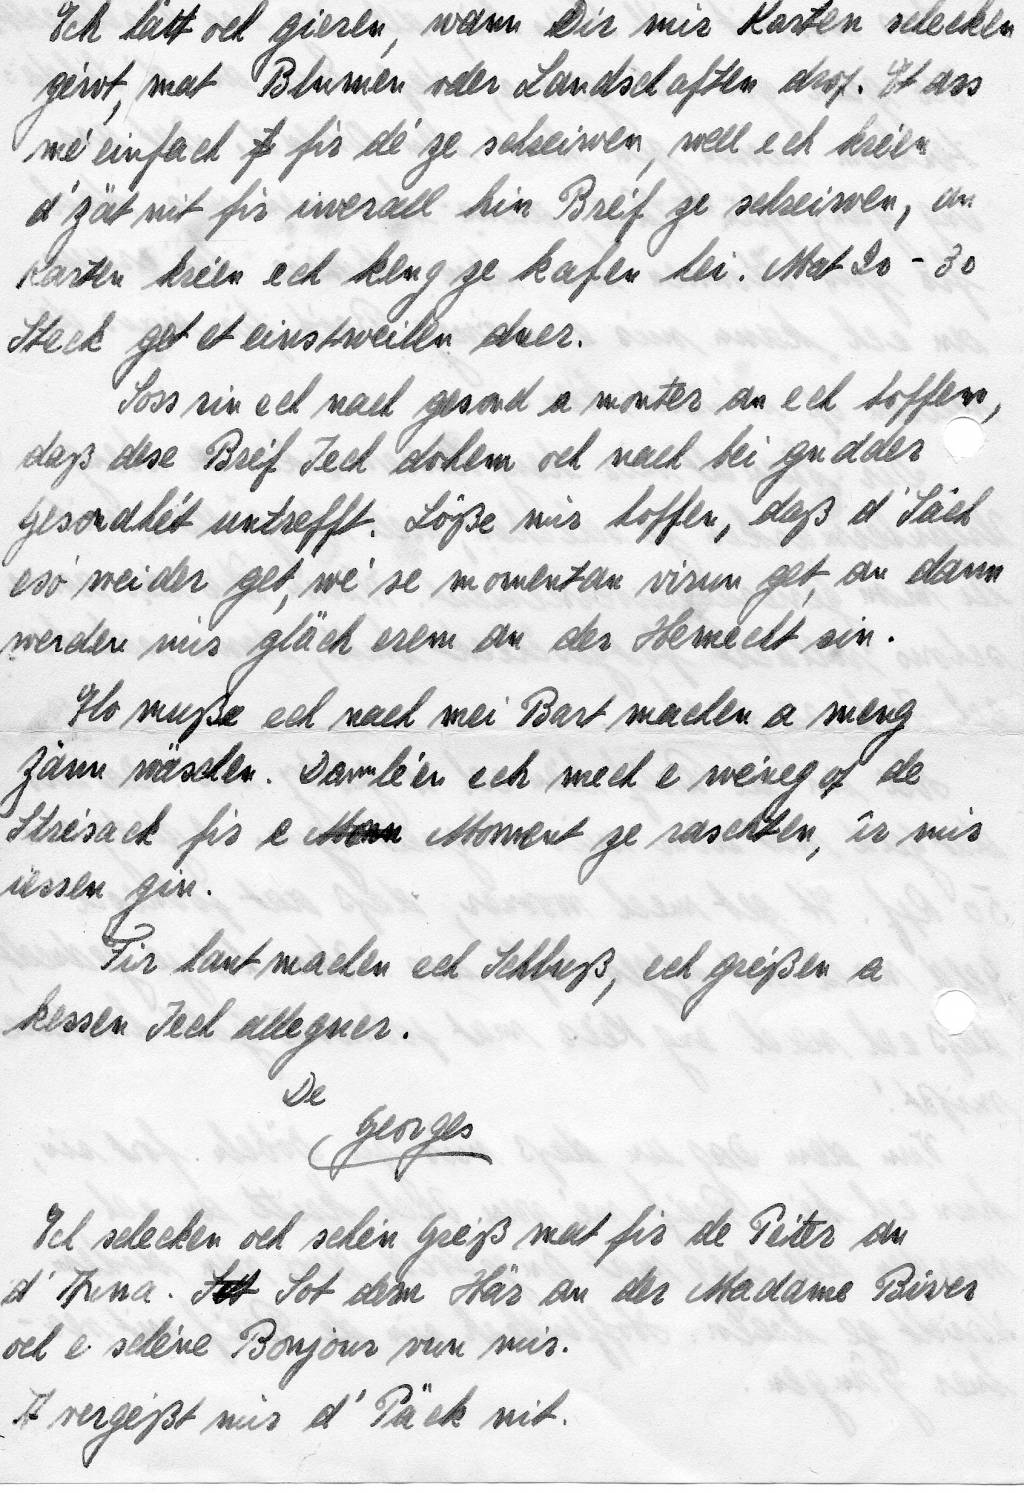 Ech hätt och gieren, wann Dir mir Karten schecken
géwt, mat Blumen oder Landschaften drop. Et ass
mé einfach fir dé ze schreiwen, well ech kréien
d'Zät nit fir iwerall hin Bréf ze schreiwen, an
Karten kréien ech keng ze kafen hei. Mat 20 - 30
Steck get et einstweilen duer.
Soss sin ech nach gesond a monter an ech hoffen,
daß dese Bréf Iech dohem och nach bei gudder
Gesondhét untrefft. Löße mir hoffen, daß d'Säch
esó weider get, wé se momentan virun get, an dann
werden mir gläch erem an der Hemecht sin.
Elo muße ech nach mei Bart machen a meng
Zänn wäschen. Dann léen ech mech e wéineg op de
Strésack fir e Moment ze raschten, ir mir
iessen gin.
Fir haut machen ech Schluß, ech gréißen a
kessen Iech alleguer.
De
Georges
Ech schecken och schéin Gréiß mat fir de Péiter an
d'Anna. Sot dem Här an der Madame Biver
och e schéne Bonjour vun mir.
A vergéßt mir d'Päck nit.